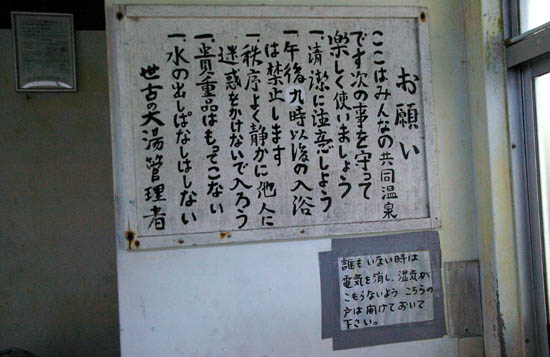 お願い
ここはみんなの共同温泉
です次の事を守って
楽しく使いましょう
一、清潔に注意しよう
一、午後九時以後の入浴
は禁止します
一、秩序よく静かに他人に
迷惑をかけないで入ろう
一、貴重品はもってこない
一、水の出しぱなしはしない
世古の大湯管理者
誰もいない時は
電気を消し、湿気が
こもらないよう こちらの
戸は開けておいて
下さい。